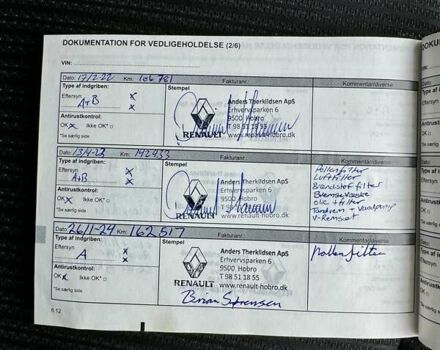 DOKUMENTATION FOR VEDLIGEHOLDELSE (2/6)
VIN:
Dato: 17/2-22 Km: 106781 Fakturanr.: Kommentar/diverse
Type af indgriben: Stempel
Eftersyn x
A+B x
Antirustkontrol:
OK x Ikke OK* □
*Se særlig side
RENAULT
Anders Therkildsen ApS
Erhvervsparken 6
9500 Hobro
T 98 51 18 55
www.renault-hobro.dk
Dato: 13/4-23 Km: 142433 Fakturanr.: Kommentar/diverse
Type af indgriben: Stempel
Eftersyn x
A+B x
Antirustkontrol:
OK x Ikke OK* □
*Se særlig side
RENAULT
Anders Therkildsen ApS
Erhvervsparken 6
9500 Hobro
T 98 51 18 55
www.renault-hobro.dk
Pollenfilter
Luftfilter
Brændstof filter
Bremsevæske
olie + filter
Tandrem + Vandpump
V-Remsæt
Dato: 26/1-24 Km: 162517 Fakturanr.: Kommentar/diverse
Type af indgriben: Stempel
Eftersyn x
A x
Antirustkontrol:
OK x Ikke OK* □
*Se særlig side
RENAULT
Anders Therkildsen ApS
Erhvervsparken 6
9500 Hobro
T 98 51 18 55
www.renault-hobro.dk
Brian Sørensen
pollenfilter
6.12